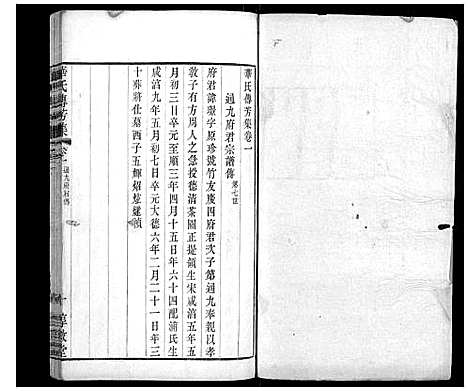 華氏傳芳集卷一
通九府君宗譜傳 第七世
府君諱璟字原珍號竹友慶四府君次子第通九奉親以孝
敎子有方周人之急例授德清茶園正提領生宋咸淳
月初三日卒元至順三年四月十五日年六十四配浦氏生
咸淳九年五月初七日卒元大德六年二月二十一日年三
十葬將仕墓西子五輝焴
華氏傳芳集
卷一
通九府君傳
一
享敘堂